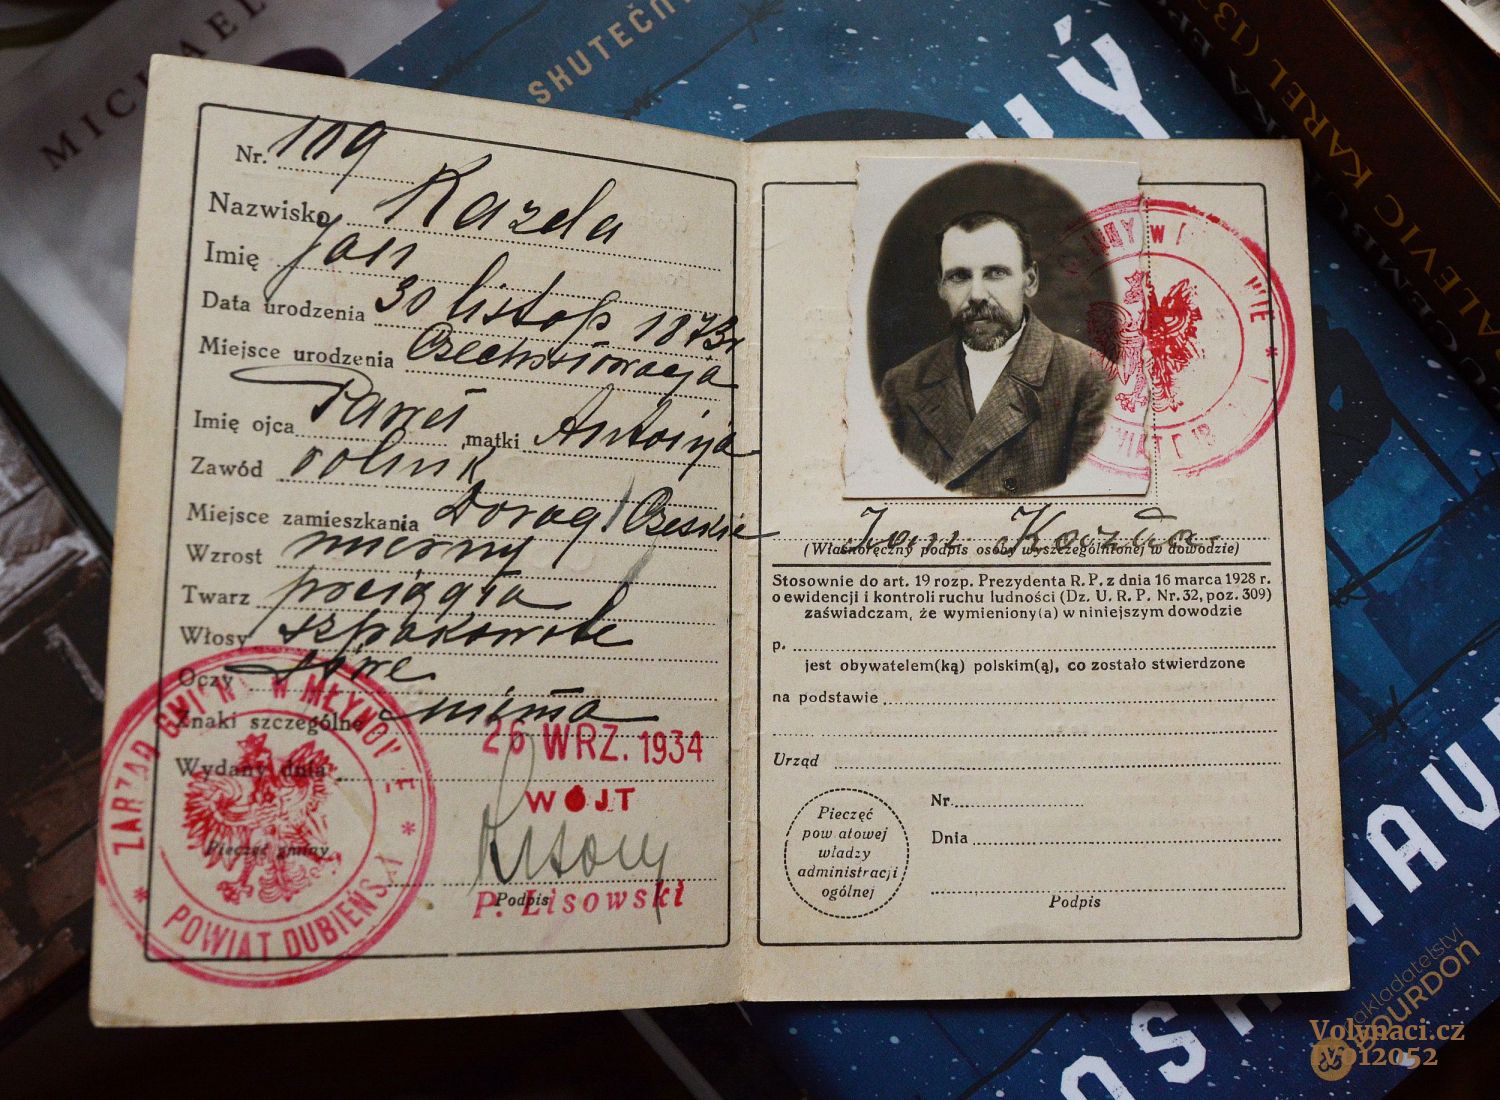 MICHAEL
SKUTEČN
Nr. 109
Nazwisko Kazda
Imię Jan
Data urodzenia 30 listop 1873r
Miejsce urodzenia Czechosłowacja
Imię ojca Paweł matki Antonija
Zawód rolnik
Miejsce zamieszkania Dorog. Czeskie
Wzrost mierny
Twarz pociągła
Włosy szpakowate
Oczy siwe
Znaki szczególne niema
Wydany dnia 26 WRZ. 1934
WÓJT
Pieczęć gminy
Podpis
P. Lisowski
ZARZĄD GMINY W MŁYNOWIE
* POWIAT DUBIEŃSKI *
Jan Kazda
(Własnoręczny podpis osoby wyszczególnionej w dowodzie)
Stosownie do art. 19 rozp. Prezydenta R. P. z dnia 16 marca 1928 r.
o ewidencji i kontroli ruchu ludności (Dz. U. R. P. Nr. 32, poz. 309)
zaświadczam, że wymieniony(a) w niniejszym dowodzie
p.
jest obywatelem(ką) polskim(ą), co zostało stwierdzone
na podstawie
Urząd
Pieczęć
pow atowej
władzy
administracji
ogólnej
Nr.
Dnia
Podpis
KAREL (13
nakladatelství
BOURDON
Volynaci.cz
Ivo12052